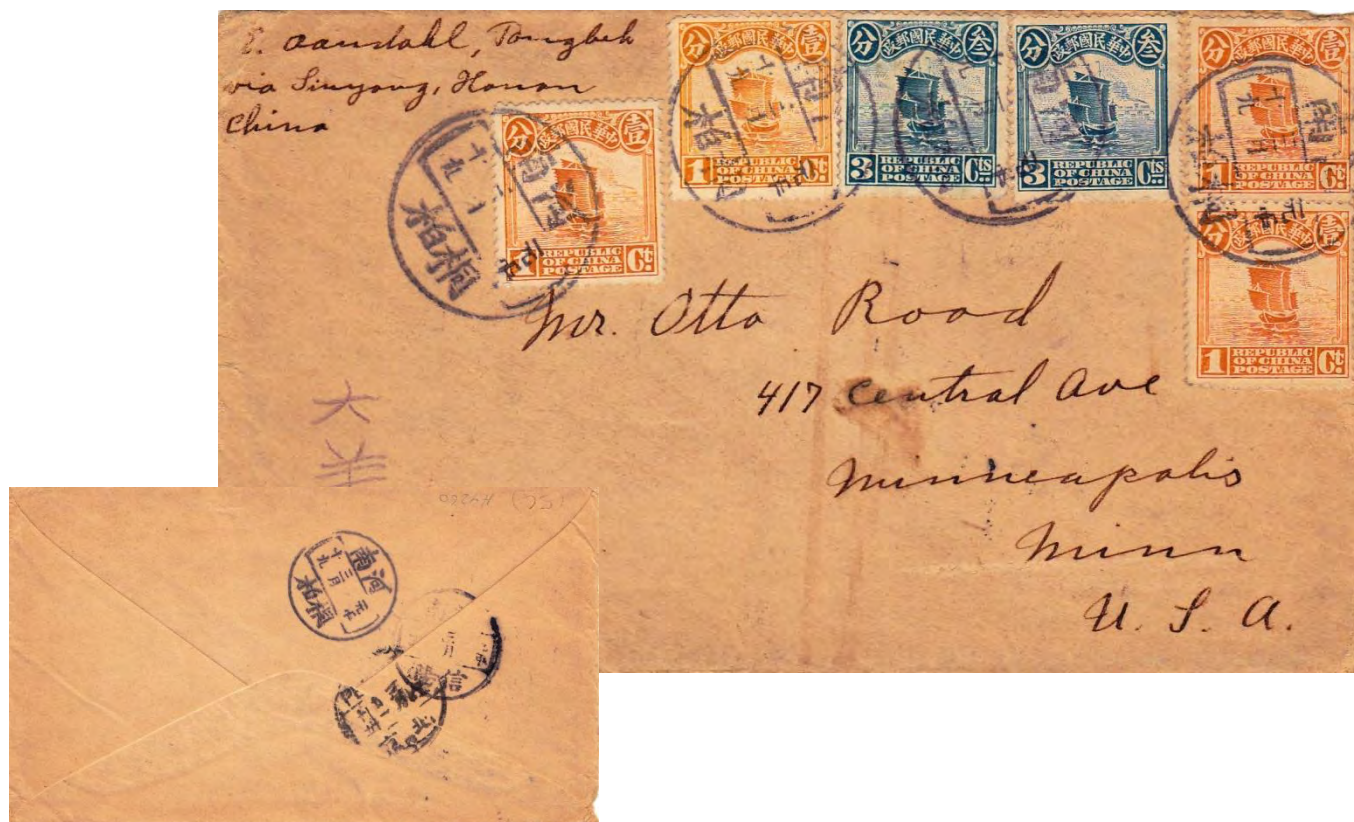 E. Aandahl, Tongbeh
via Sinyang, Honan
China
中華民國郵政
壹分
1 REPUBLIC OF CHINA POSTAGE Ct
中華民國郵政
壹分
1 REPUBLIC OF CHINA POSTAGE Ct
中華民國郵政
叁分
3 REPUBLIC OF CHINA POSTAGE Cts
中華民國郵政
叁分
3 REPUBLIC OF CHINA POSTAGE Cts
中華民國郵政
壹分
1 REPUBLIC OF CHINA POSTAGE Ct
中華民國郵政
壹分
1 REPUBLIC OF CHINA POSTAGE Ct
十九
桐柏
Mr. Otto Rood
417 Central Ave
Minneapolis
Minn
U. S. A.
大
河南
十九
三月
桐柏
信